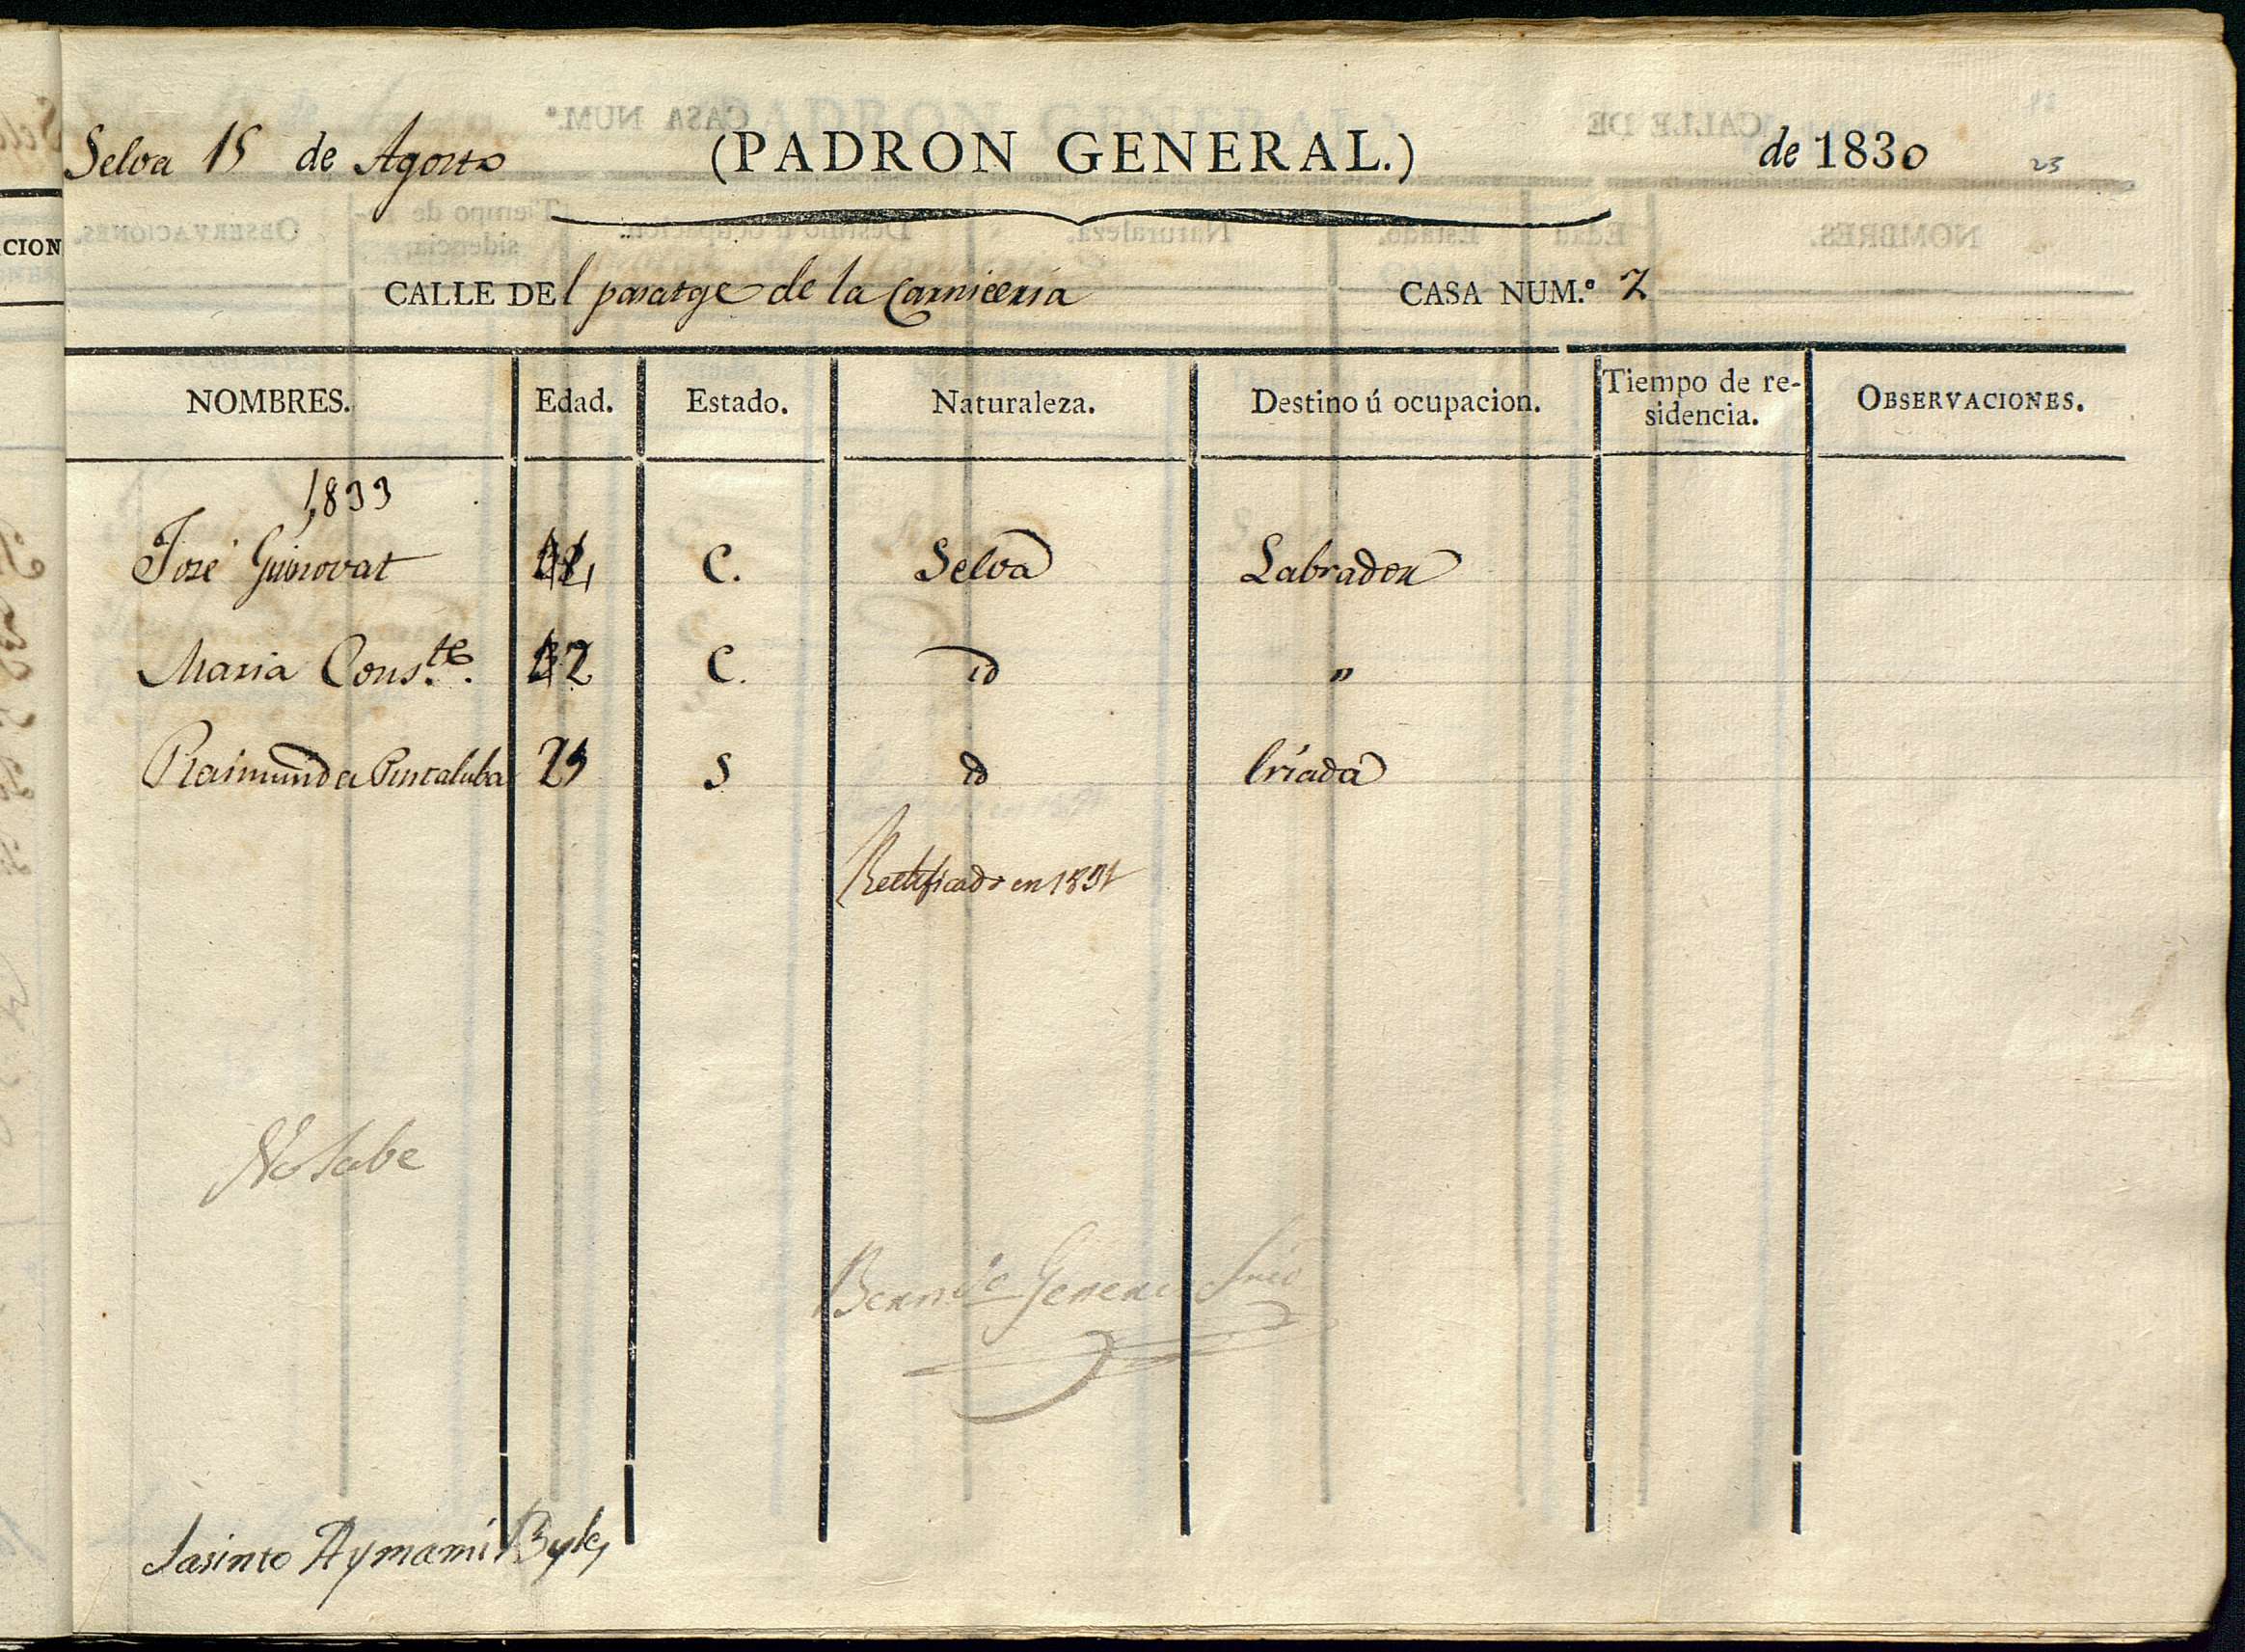 Selva 15 de Agosto (PADRON GENERAL.) de 1830 23
CALLE DEl pasatge de la Carniceria CASA NUM.º 2
NOMBRES. Edad. Estado. Naturaleza. Destino ú ocupacion. Tiempo de re-
sidencia. OBSERVACIONES.
1833
José Guinovat C. Selva Labrador
Maria Cons.te C. id "
Raimunda Puntaluba 25 S id Criada
Rectificado en 1831
No Sabe
Jasinto Aymamí Byle,